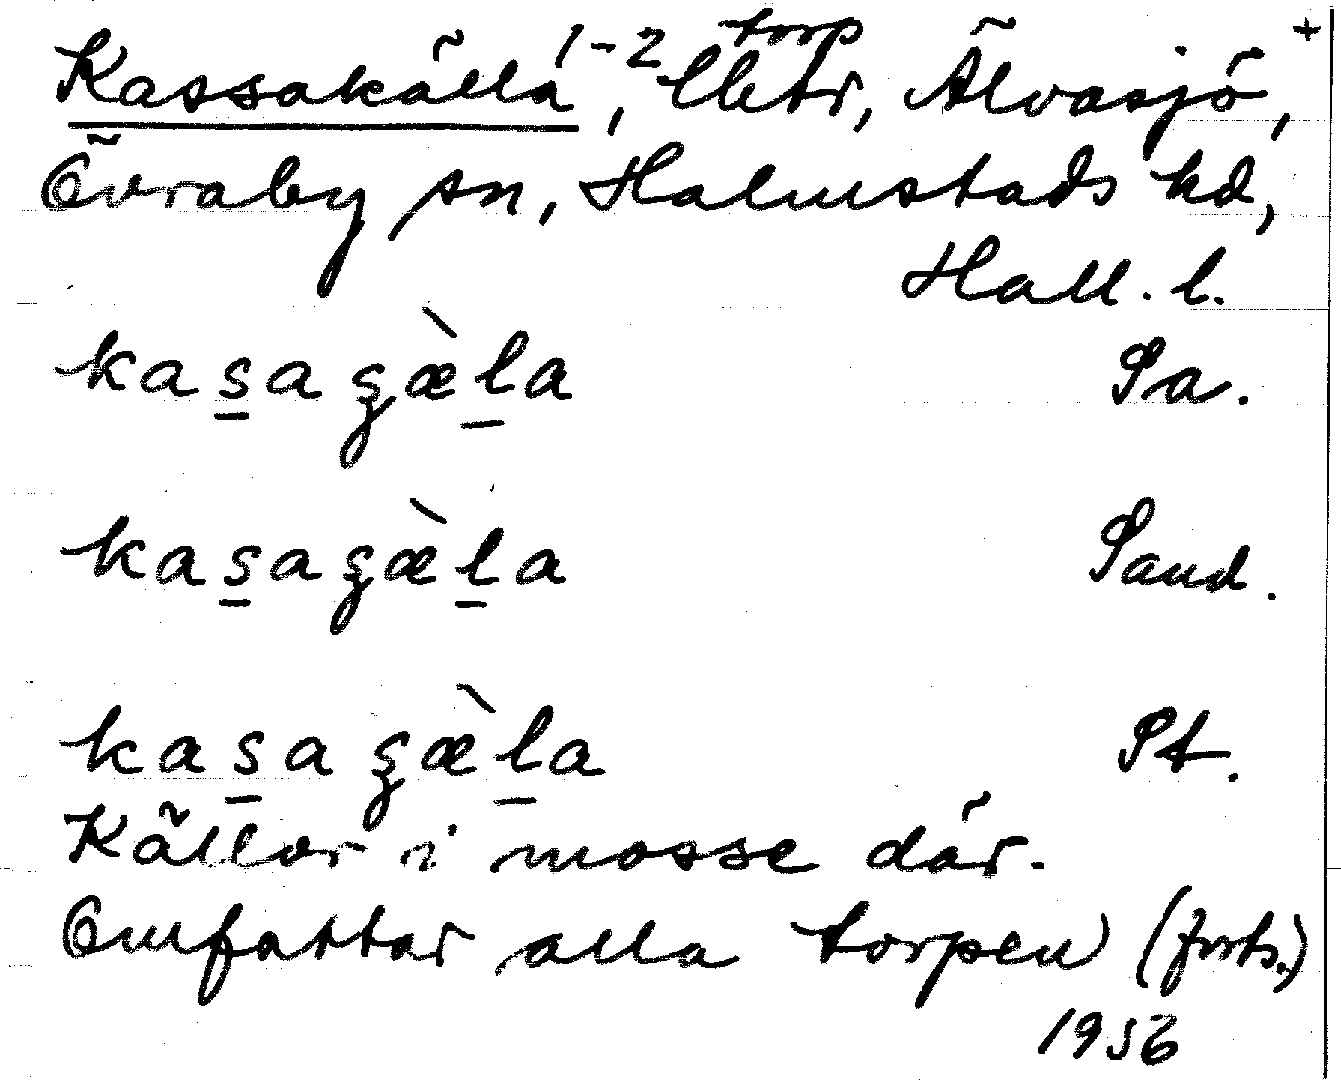 Kassakälla 1-2, torp lletr, Älvasjö, +
Övraby sn, Halmstads hd,
Hall. l.
kas̲agæ̀l̲a Sa.
kas̲agæ̀l̲a Sand.
kas̲agæ̀l̲a St.
Källor i mosse där.
Omfattar alla torpen (forts.)
1956